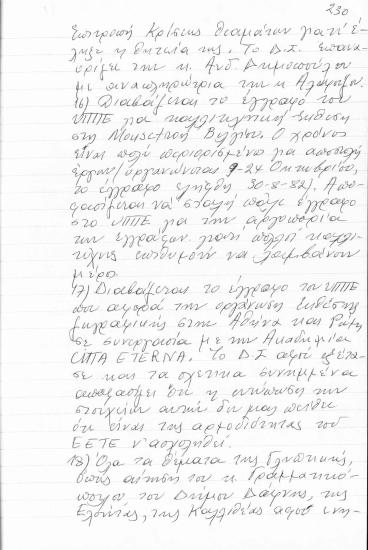 230
Επιτροπή Κρίσεως θεαμάτων γιατί έ-
ληξε η θητεία της. Το Δ.Σ. επανα-
ορίζει την κ. Ανδ. Δημοπούλου
με αναπληρώτρια την κ
16) Διαβάζεται το έγγραφο του
ΥΠΠΕ για καλλιτεχνική έκθεση
στη Βελγίου. Ο χρόνος
είναι πολύ περιορισμένο για αποστολή
έργων (οργανώνεται 9-24 Οκτωβρίου,
το έγγραφο ελήφθη 30-8-82). Απο-
φασίζεται να σταλή πάλι έγγραφο
στο ΥΠΠΕ για την αργοπορία
των εγγράφων γιατί πολλοί καλλι-
τέχνες επιθυμούν να λαμβάνουν
μέρος.
17) Διαβάζεται το έγγραφο του ΥΠΠΕ
που αφορά την οργάνωση έκθεσης
ζωγραφικής στην Αθήνα και Ρώμη
σε συνεργασία με την Ακαδημία
CITTA ETERNA. Το Δ.Σ αφού εξέτα-
σε και τα σχετικά συνημμένα
αποφάσισε ότι η εντύπωση των
στοιχείων αυτών δεν μας πείθει
ότι είναι της αρμοδιότητας του
ΕΕΤΕ ν' ασχοληθεί.
18) Όλα τα θέματα της Γλυπτικής,
όπως αίτηση του κ. Γραμματικό-
πουλου, του Δήμου Δάφνης, της
της Καλλιθέας αφού ενη-